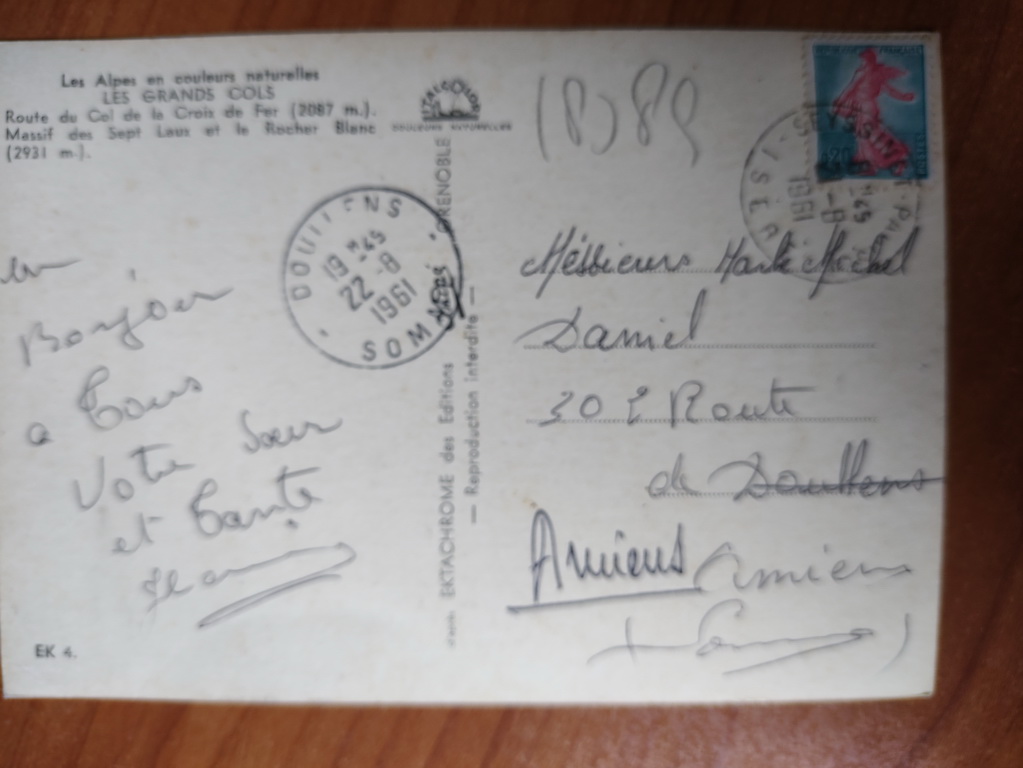 Les Alpes en couleurs naturelles
LES GRANDS COLS
Route du Col de la Croix de Fer (2087 m.).
Massif des Sept Laux et le Rocher Blanc
(2931 m.).
COULEURS NATURELLES
(8) 89
ISÈRE
1961
DOULLENS
19 H 45
22-8
1961
SOMME
Bonjour
a Tous
Votre Sœur
et Tante
EK 4.
EKTACHROME des Editions
GRENOBLE
— Reproduction interdite —
Messieurs
Daniel
Route
de Doullens
Amiens Amiens
(Somme)